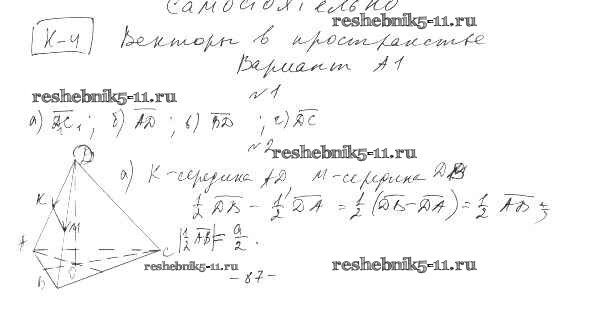 Самостоятельно
reshebnik5-11.ru
К-4 Векторы в пространстве
Вариант А1
reshebnik5-11.ru
№1
а) ; б) AD ; в) BD ; г) DC
№2
reshebnik5-11.ru
а) K-середина AD M-середина DB
1/2 DB - 1/2 DA = 1/2 (DB-DA) = 1/2 AB ⇒
|1/2 AB| = a/2 .
D
K
M
A
O
C
B
reshebnik5-11.ru
-87-
reshebnik5-11.ru